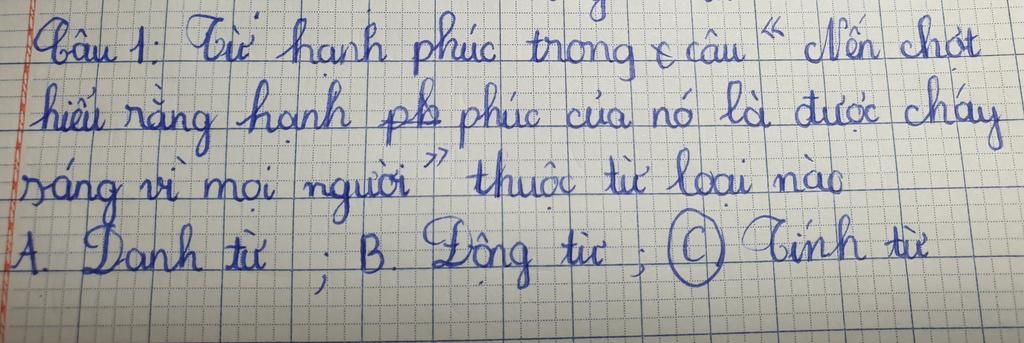 Câu 1: Từ hạnh phúc trong c câu " Nến chợt
hiểu rằng hạnh ph phúc của nó là được cháy
sáng vì mọi người " thuộc từ loại nào
A. Danh từ ; B. Động từ ; C Tính từ